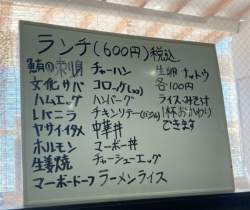 ランチ(600円)税込
鮪の刺身 チャーハン 生卵 ナットウ
文化サバ コロッケ 各100円
ハムエッグ ハンバーグ ライス・みそ汁
レバニラ チキンソテー(バジル) 1杯おかわり
ヤサイイタメ 中華丼 できます
ホルモン マーボー丼
生姜焼 チャーシューエッグ
マーボードーフ ラーメンライス